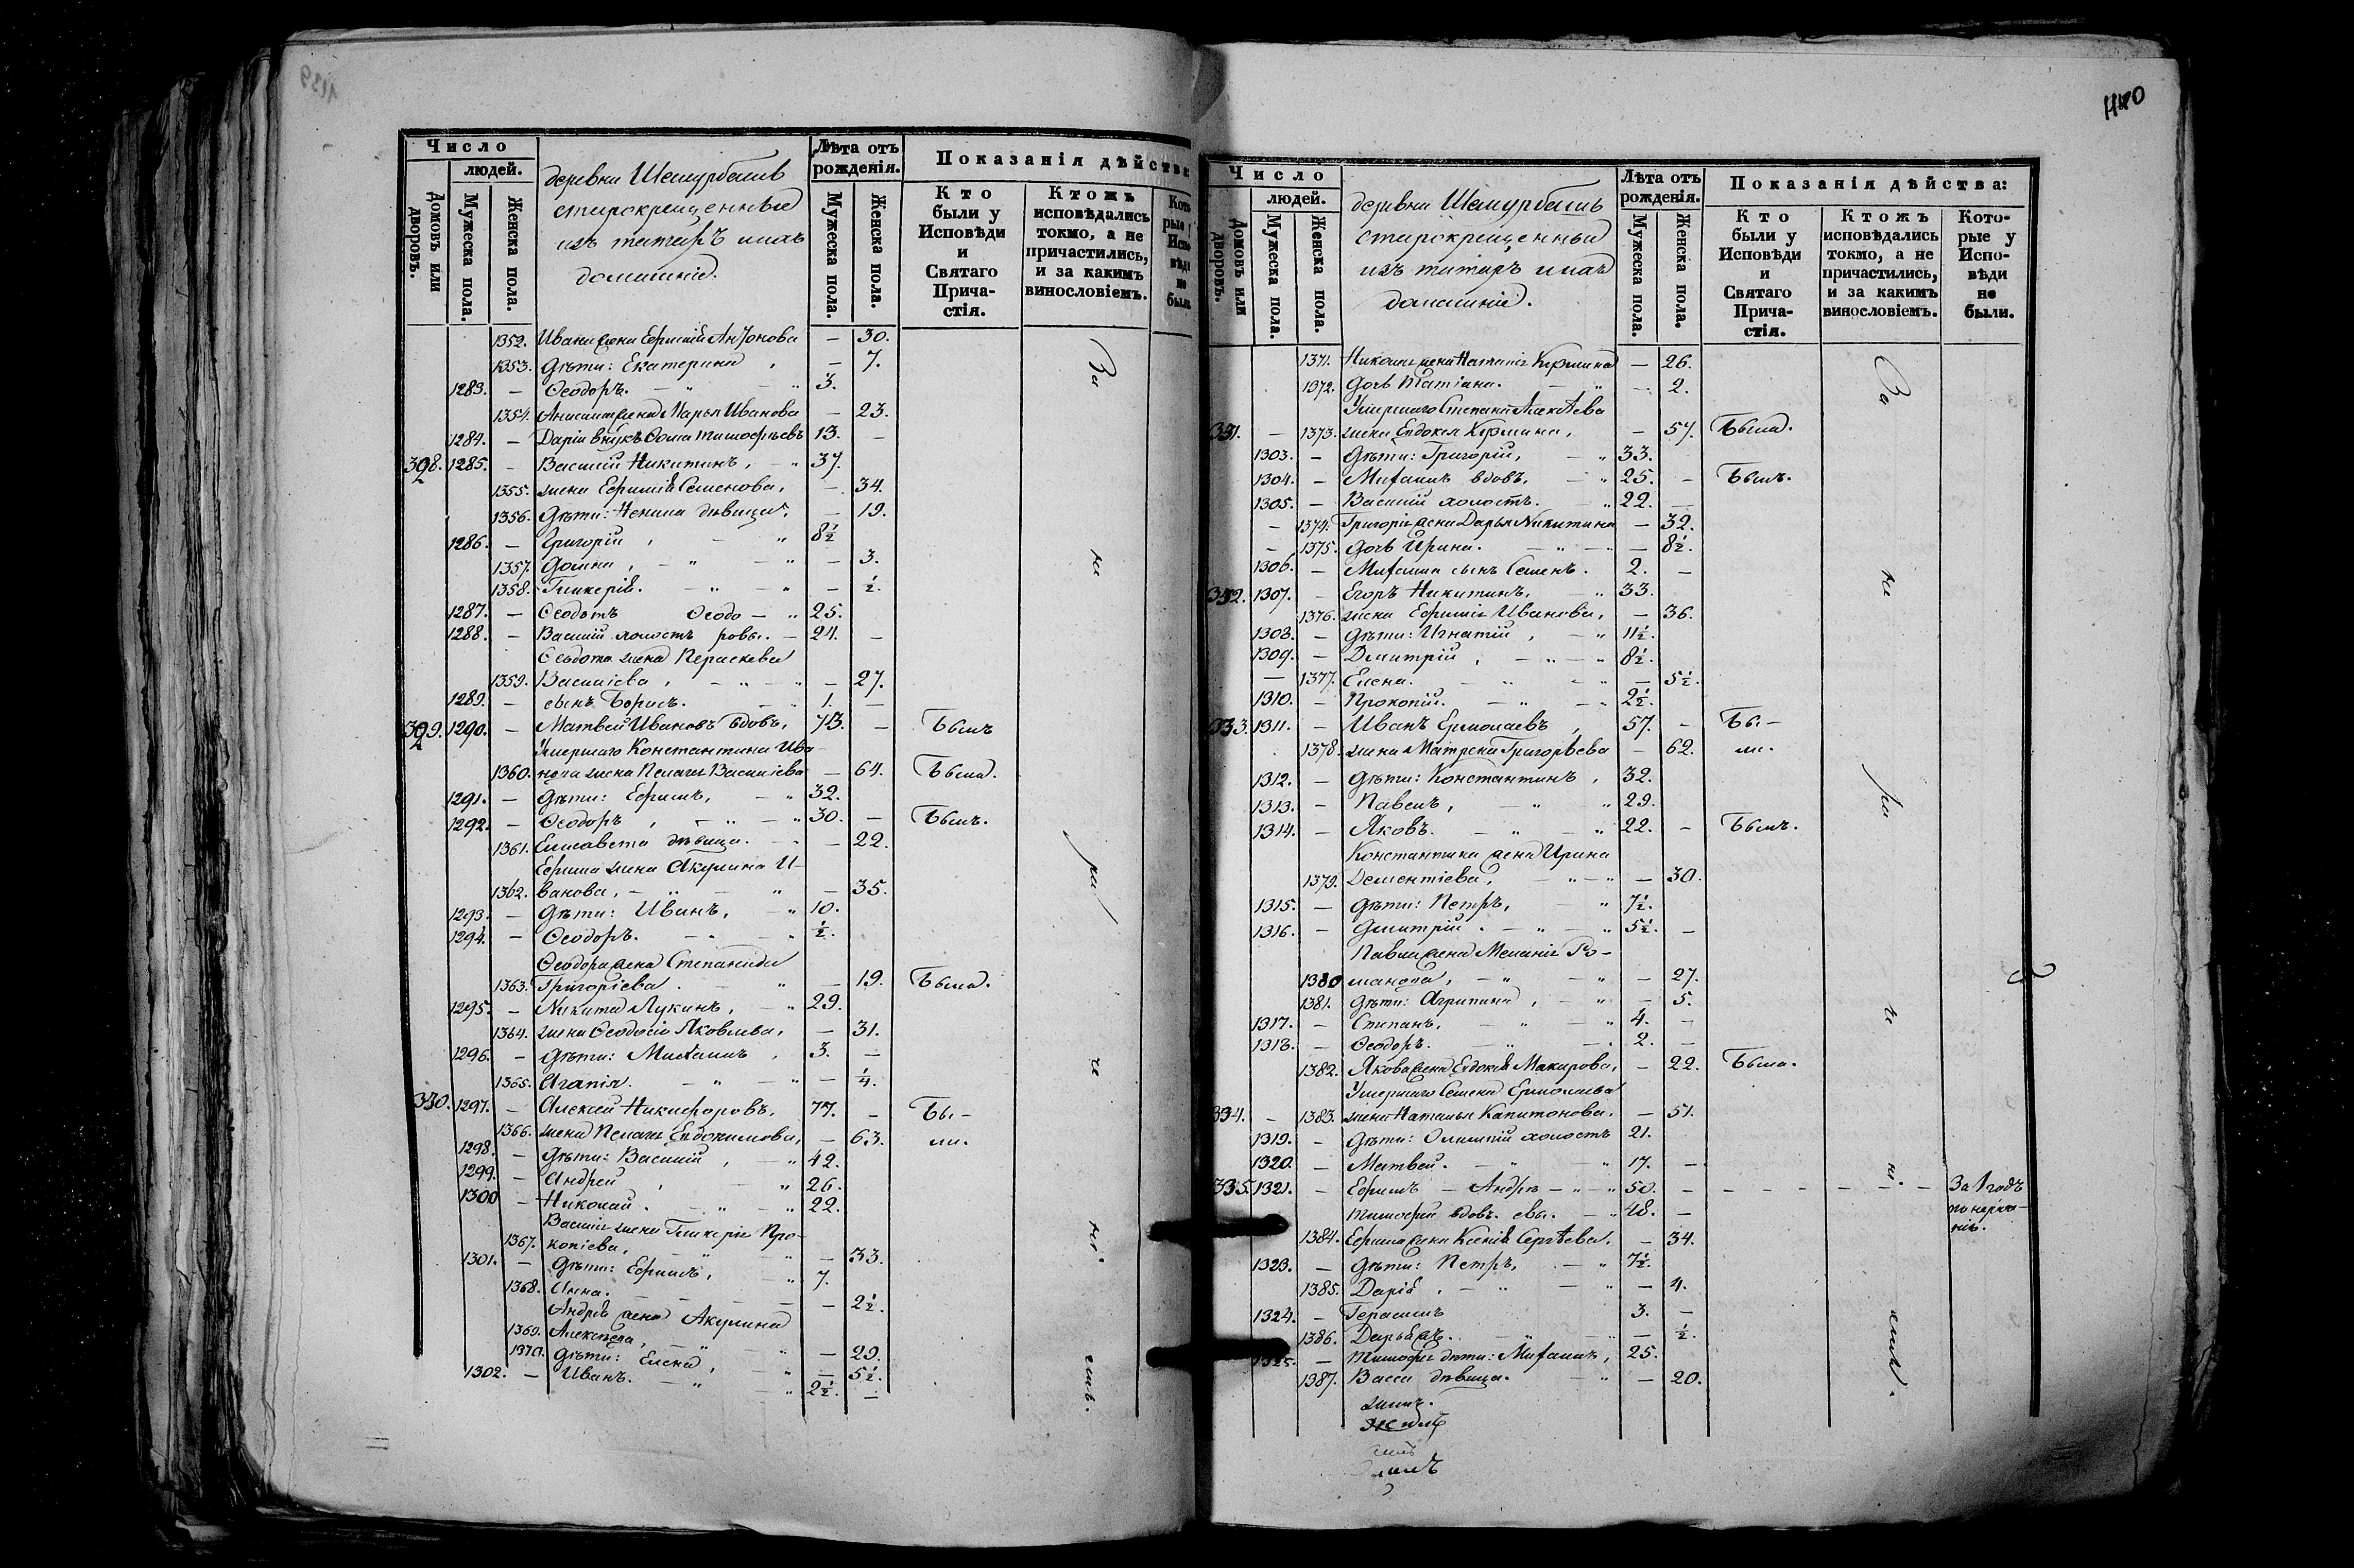 1139
Число
людей.
Домовъ или дворовъ.
Мужеска пола.
Женска пола.
деревни Шемурбашъ
старокрещенные
изъ татаръ и ихъ
домашніе.
Лѣта отъ рожденія.
Мужеска пола.
Женска пола.
Показанія дѣйства
Кто были у Исповѣди и Святаго Причастія.
Ктожъ исповѣдались токмо, а не причастились, и за какимъ винословіемъ.
1352. Ивана жена Евфимія Антонова — 30.
1353. Дѣти: Екатерина, — 7.
1283. — Ѳеодоръ. — „ — „ 3.
1354. жена Марья Иванова — 23.
1284. — Дарiи внукъ Ѳома Тимофѣевъ 13. —
328. 1285. — Василій Никитинъ, — „ 37.
1355. жена Евфимія Семенова, — 34.
1356. Дѣти: девица. — 19.
1286. — Григорій, — „ 8½
1357. Домна, — „ — „ — 3.
1358. Гликерія. — „ — „ — ½.
1287. — Ѳеодотъ Ѳеодо — „ 25.
1288. — Василій холостъ ровы. — 24. —
Ѳеодота жена Параскева
1359. Василіева, — „ — „ — 27.
1289. — сынъ Борисъ. 1. —
329. 1290. — Матвей Ивановъ вдовъ, 73. — Былъ
Умершаго Константина Ива-
1360. нова жена Пелагія Василіева — 64. Была.
1291. — Дѣти: Ефимъ, — „ 32.
1292. — Ѳеодоръ, — „ — „ 30. — Былъ.
1361. Елисавета дѣвица. — — 22.
Ефима жена Акулина И-
1362. ванова, — „ — „ — 35.
1293. — Дѣти: Иванъ, — „ 10.
1294. — Ѳеодоръ. — „ ½.
Ѳеодора жена Степанида
1363. Григорiева. — „ — 19. Была.
1295. — Никита Лукинъ, — „ 29.
1364. жена Ѳеодосія Яковлева, — 31.
1296. — Дѣти: Михаилъ, 3. —
1365. Агапія. — „ — „ — ¼.
330. 1297. — Алексей Никифоровъ, 77. — Бы-
1366. жена Пелагія Евдокимова, — 63. ли.
1298. — Дѣти: Василій, — „ 42.
1299. — Андрей, „ 26.
1300 — Николай. — „ — „ 22.
Василія жена Гликерія Про-
1367. копіева, — „ — 33.
1301. — Дѣти: Ефимъ, „ 7.
1368. Анна. — — — — 2½.
Андрея жена Акулина
1369. Алексѣева, — „ „ — 29.
1370. Дѣти: Елена, „ — 5½.
1302. — Иванъ. — „ „ 2½. —
За не ра че ні емъ.
1140
Число
людей.
Домовъ или дворовъ.
Мужеска пола.
Женска пола.
деревни Шемурбашъ
старокрещенные
изъ татаръ и ихъ
домашніе.
Лѣта отъ рожденія.
Мужеска пола.
Женска пола.
Показанія дѣйства:
Кто были у Исповѣди и Святаго Причастія.
Ктожъ исповѣдались токмо, а не причастились, и за какимъ винословіемъ.
Которые у Исповѣди не были.
1371. Николая жена Наталія — 26.
1372. Дочь Татіана. — „ — 2.
Умершаго Степана Алексѣева
331. — 1373. жена Евдокія — 57. Была.
1303. — Дѣти: Григорій, — „ 33.
1304. — Михаилъ вдовъ, — „ 25. — Былъ.
1305. — Василій холостъ. „ 22. —
— 1374. Григорія жена Дарья Никитина — 32.
— 1375. Дочь Ирина. — „ — — 8½.
1306. — Михаила сынъ Семенъ. 2. —
332. 1307. — Егоръ Никитинъ, „ 33.
1376. жена Евфимія Иванова, — 36.
1308. — Дѣти: Игнатій, — „ 11½.
1309. — Дмитрій, — „ — „ 8½.
— 1377. Елена. — „ — „ — 5½.
1310. — Прокопій. — „ — „ 2½.
333. 1311. — Иванъ Ермолаевъ, 57. — Бы-
1378. жена Матрена Григорьева — 62. ли.
1312. — Дѣти: Константинъ, 32.
1313. — Павелъ, — „ „ 29.
1314. — Яковъ. — „ — „ 22. — Былъ.
Константина жена Ирина
1379. Дементіева, — „ — „ — 30.
1315. — Дѣти: Петръ, — „ 7½.
1316. — Дмитрій. — „ — „ 5½. —
Павла жена Меланія Ро-
1380 манова, — „ „ — 27.
1381. Дѣти: Агрипина, — „ — 5.
1317. — Степанъ, — „ — „ 4. —
1318. — Ѳеодоръ. — „ — 2. —
1382. Якова жена Евдокія Макарова, — 22. Была.
Умершаго Семена Ермолаева
334. — 1383. жена Наталья Капитонова. — 51.
1319. — Дѣти: холостъ 21.
1320. — Матвей. — „ „ 17. —
335. 1321. — Ефимъ — Андре — „ — „ 50. — — — — — — — — За 1 годъ
Тимофей вдовъ. евы. — „ 48. — по нераче-
нію.
1384. Ефима жена Ксенія Сергѣева. — 34.
1323. — Дѣти: Петръ, — „ 7½.
1385. Дарія, — „ — „ — 4.
1324. — Герасимъ 3. —
1386. — „ — ½.
1325. — Тимофея дѣти: Михаилъ, 25.
1387. Васса дѣвица. — „ — 20.
За не ра че ні емъ.